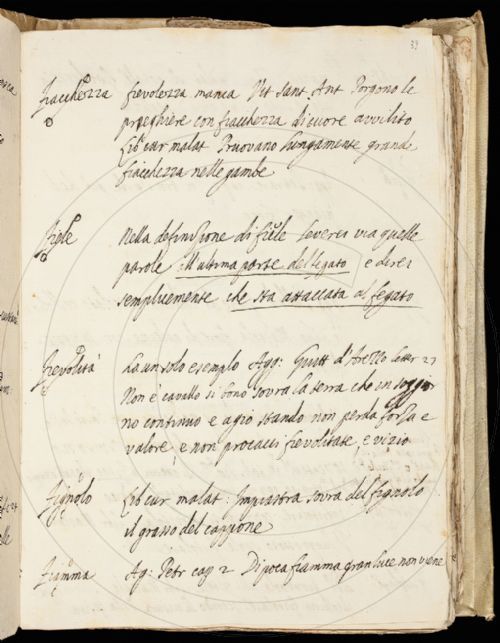 39
Fiacchezza fievolezza manca Vit Sant Ant Porgono le
preghiere con fiacchezza di cuore avvilito
Lib cur malat Pruovano lungamente grande
fiacchezza nelle gambe
Fiele Nella definizione di fiele leverei via quelle
parole all ultima parte del fegato e direi
semplicemente che sta attaccata al fegato
Fievolità Ha un solo esempio Agg: Guitt d'Arezzo letter 27
Non è cavallo sì bono sovra la terra che in soggior
no continuo e agio stando non perda forza e
valore, e non procacci fievolitate, e vizio
Fignolo Lib cur malat: Impiastra sovra del fignolo
il grasso del cappone
Fiamma Ag: Petr cap 2 Di poca fiamma gran luce non viene